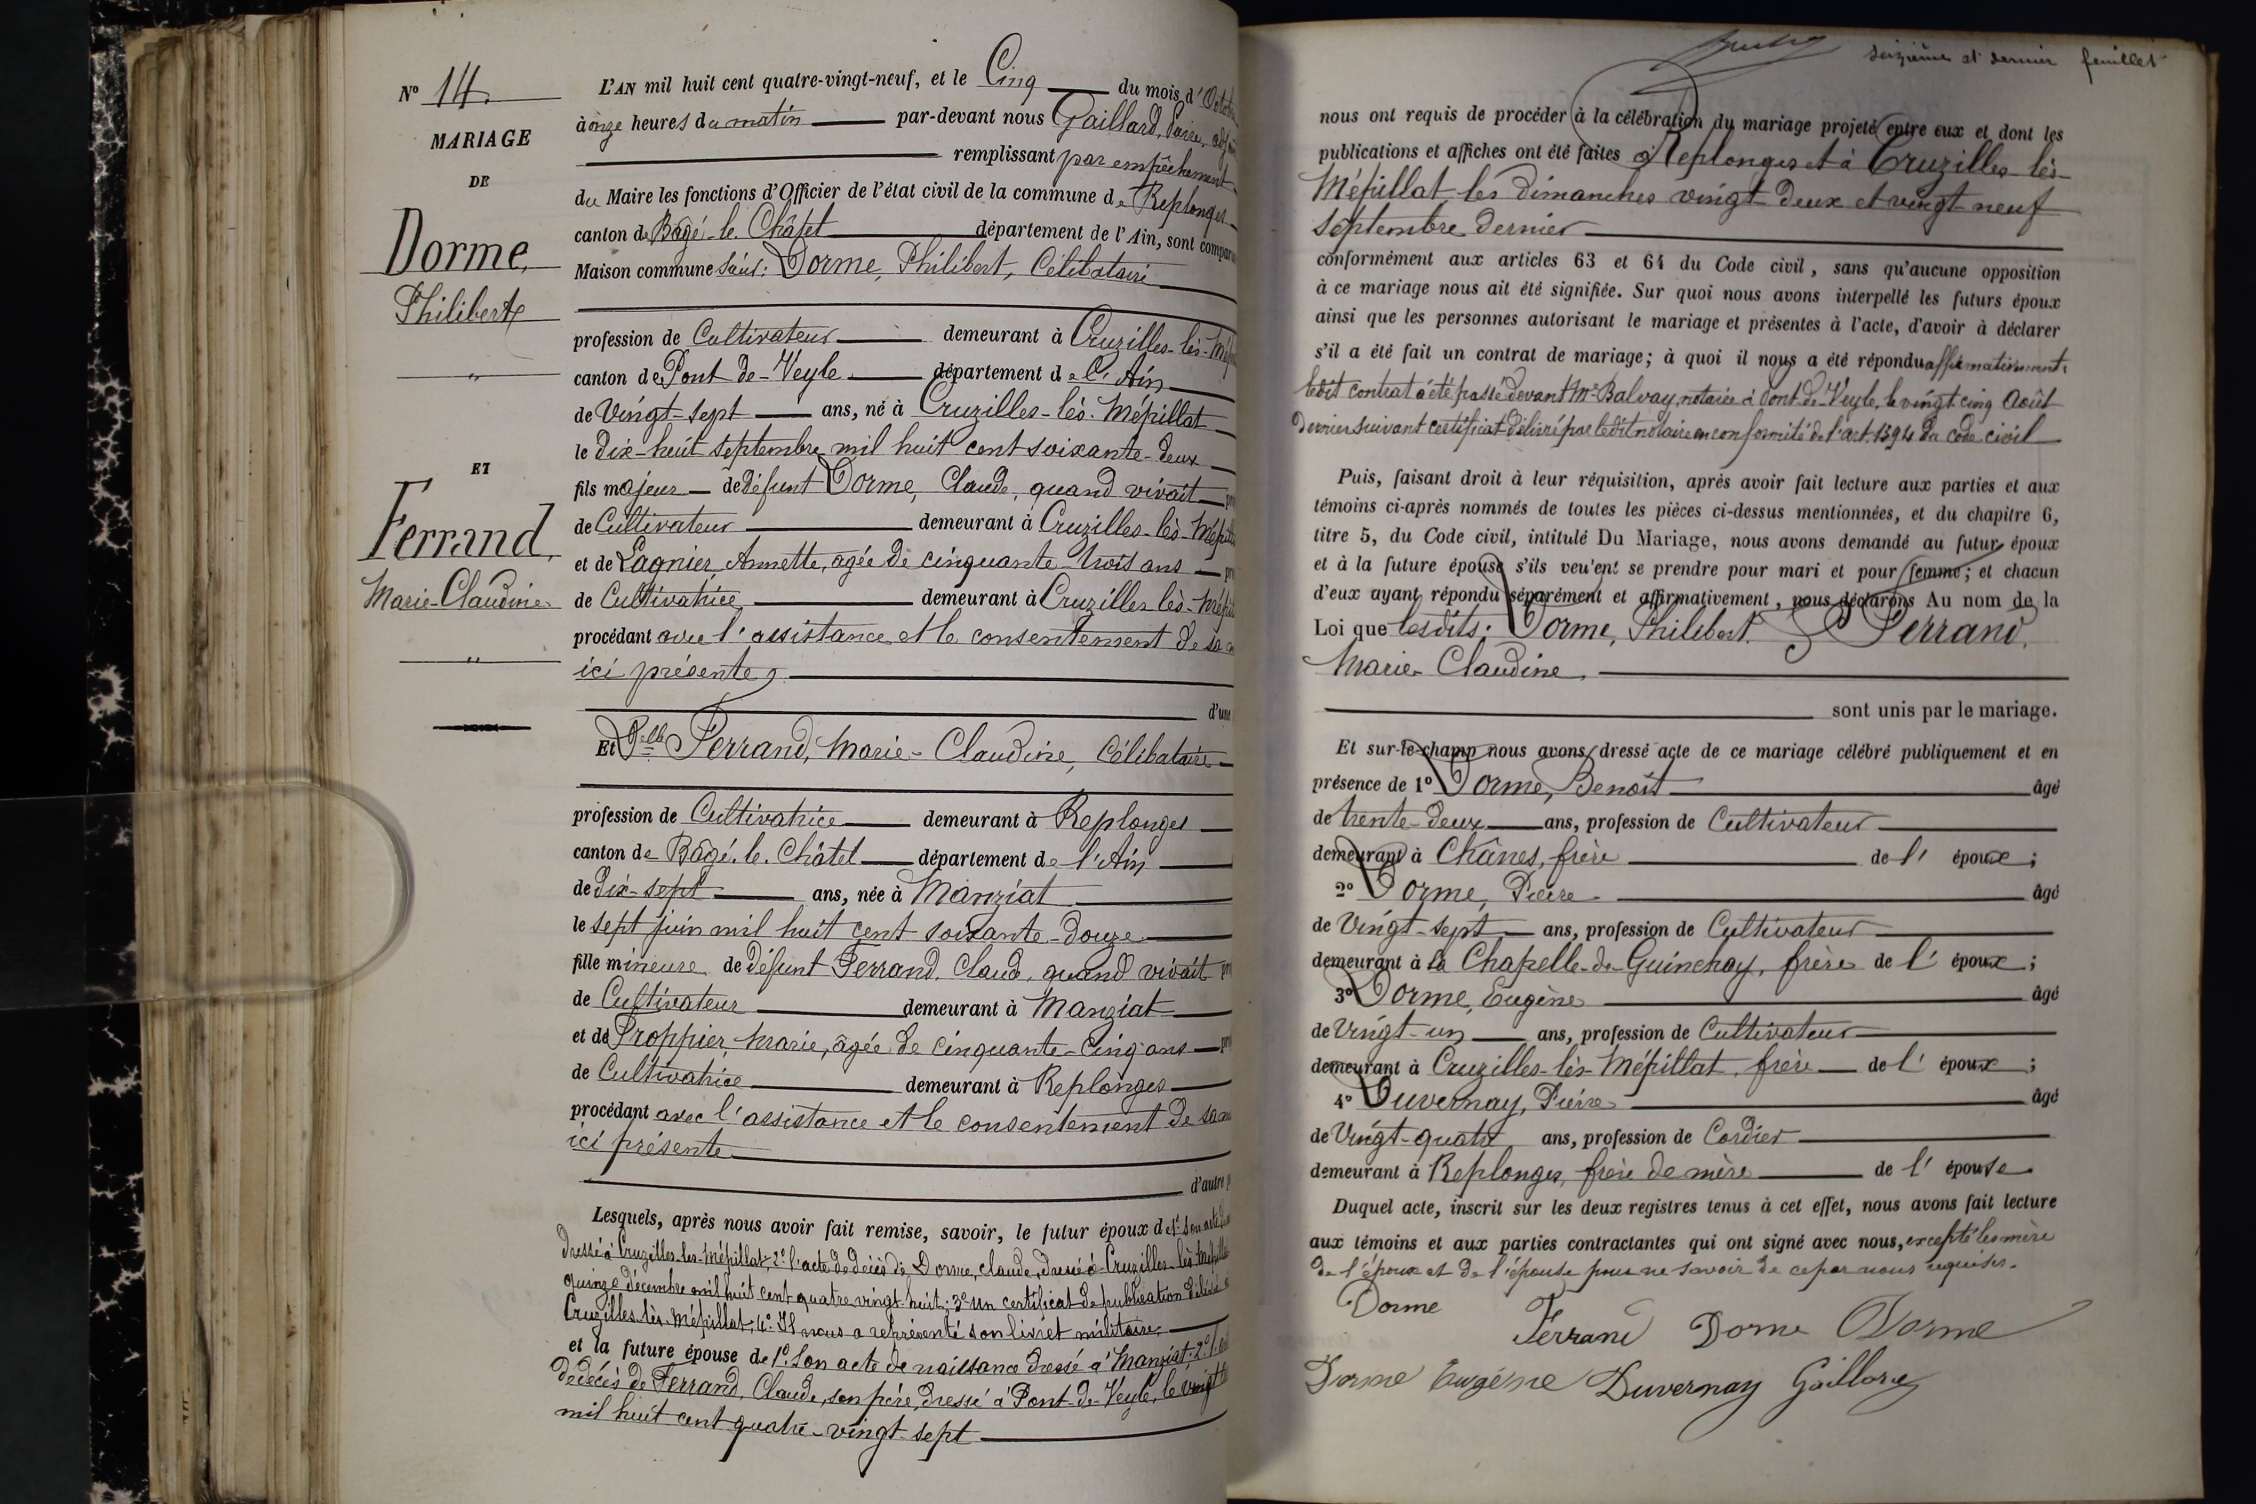 N° 14.
MARIAGE
DE
Dorme,
Philibert
"
ET
Ferrand,
Marie-Claudine
"
L'AN mil huit cent quatre-vingt-neuf, et le Cinq du mois d'Octobre
à onze heures du matin par-devant nous Gaillard,
remplissant par empêchement
du Maire les fonctions d'Officier de l'état civil de la commune de Replonges
canton de Bâgé-le-Châtel département de l'Ain, sont comparus
Maison commune Dorme, Philibert, Célibataire
profession de Cultivateur demeurant à Cruzilles-lès-Mép
canton de Pont-de-Veyle département de l'Ain
de Vingt-sept ans, né à Cruzilles-lès-Mépillat
le Dix-huit septembre mil huit cent soixante-deux
fils majeur de défunt Dorme, Claude, quand vivait
de Cultivateur demeurant à Cruzilles-lès-Mépilla
et de Lagnier Annette, âgée de cinquante-trois ans
de Cultivatrice demeurant à Cruzilles lès-Mépi
procédant avec l'assistance et le consentement de sa
ici présente
d'une
Et Dlle Ferrand, Marie-Claudine, Célibataire
profession de Cultivatrice demeurant à Replonges
canton de Bâgé-le-Châtel département de l'Ain
de Dix-sept ans, née à Manziat
le sept juin mil huit cent soixante-douze
fille mineure de défunt Ferrand, Claude, quand vivait
de Cultivateur demeurant à Manziat
et de Proppier, Marie, âgée de cinquante-cinq ans
de Cultivatrice demeurant à Replonges
procédant avec l'assistance et le consentement de sa
ici présente
d'autre p
Lesquels, après nous avoir fait remise, savoir, le futur époux de 1° Son acte
dressé à Cruzilles-les-Mépillat, 2° l'acte de décès de Dorme, Claude, dressé à Cruzilles-lès-Mepilla
quinze décembre mil huit cent quatre vingt-huit; 3° un certificat de publication délivré
Cruzilles-lès-Mépillat; 4° Il nous a représenté son livret militaire
et la future épouse de 1° Son acte de naissance dressé à Manziat; 2°
de décès de Ferrand, Claude, son père, dressé à Pont-de-Veyle, le vingt
mil huit cent quatre-vingt-sept
seizième et dernier feuillet
nous ont requis de procéder à la célébration du mariage projeté entre eux et dont les
publications et affiches ont été faites à Replonges et à Cruzilles lès-
Mépillat les dimanches vingt deux et vingt neuf
septembre dernier
conformément aux articles 63 et 64 du Code civil, sans qu'aucune opposition
à ce mariage nous ait été signifiée. Sur quoi nous avons interpellé les futurs époux
ainsi que les personnes autorisant le mariage et présentes à l'acte, d'avoir à déclarer
s'il a été fait un contrat de mariage; à quoi il nous a été répondu affirmativement.
ledit contrat a été passé devant Me Balvay, notaire à Pont-de-Veyle, le vingt cinq Août
Dernier suivant certificat délivré par ledit notaire en conformité de l'art 1394 du code civil
Puis, faisant droit à leur réquisition, après avoir fait lecture aux parties et aux
témoins ci-après nommés de toutes les pièces ci-dessus mentionnées, et du chapitre 6,
titre 5, du Code civil, intitulé Du Mariage, nous avons demandé au futur époux
et à la future épouse s'ils veu'ent se prendre pour mari et pour femme; et chacun
d'eux ayant répondu séparément et affirmativement, nous déclarons Au nom de la
Loi que lesdits: Dorme, Philibert. & Ferrand,
Marie-Claudine,
sont unis par le mariage.
Et sur-le-champ nous avons dressé acte de ce mariage célébré publiquement et en
présence de 1° Dorme, Benoît âgé
de trente-deux ans, profession de Cultivateur
demeurant à Chânes, frère de l'époux;
2° Dorme, Pierre âgé
de Vingt-sept ans, profession de Cultivateur
demeurant à la Chapelle-de-Guinchay, frère de l'époux;
3° Dorme, Eugène âgé
de Vingt-un ans, profession de Cultivateur
demeurant à Cruzilles-lès-Mépillat, frère de l'époux;
4° Duvernay, Pierre âgé
de Vingt-quatre ans, profession de Cordier
demeurant à Replonges, frère de mère de l'épouse
Duquel acte, inscrit sur les deux registres tenus à cet effet, nous avons fait lecture
aux témoins et aux parties contractantes qui ont signé avec nous, excepté les mère
de l'époux et de l'épouse pour ne savoir de ce par nous requises.
Dorme Ferrand Dorme Dorme
Dorme Eugéne Duvernay Gaillard